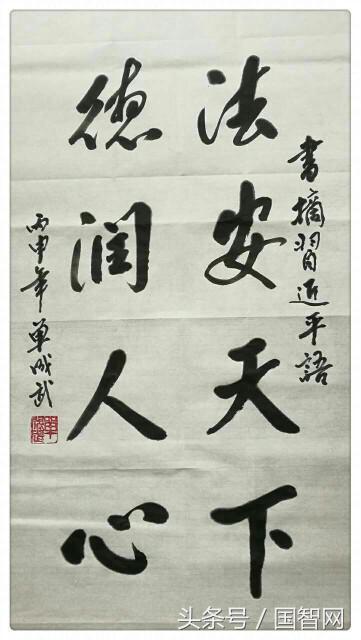 书摘習近平語
法安天下
德润人心
丙申年单成武
头条号 / 国智网